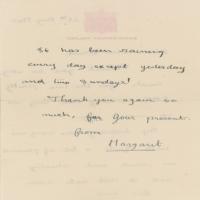 It has been raining
every day except yesterday
and two Sundays!
Thank you again so
much, for your present.
from
Margaret